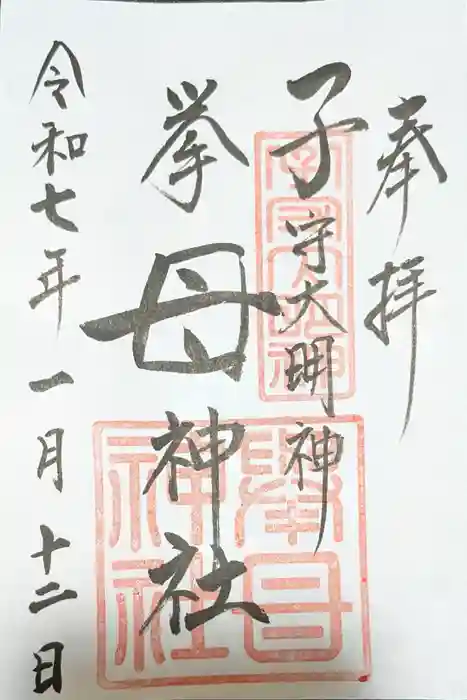 奉拝
子守大明神
挙母神社
令和七年一月十二日
子守大明神
擧母神社